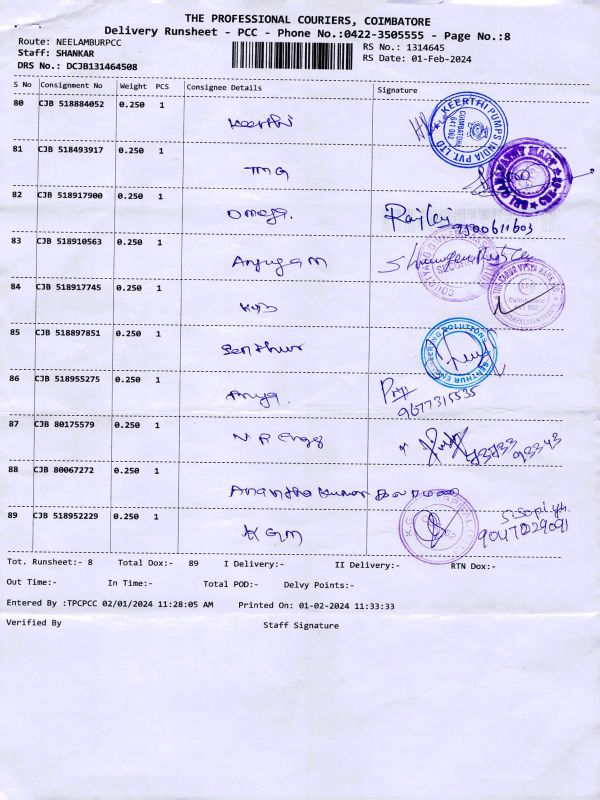 THE PROFESSIONAL COURIERS, COIMBATORE
Delivery Runsheet - PCC - Phone No.:0422-3505555 - Page No.:8
Route: NEELAMBURPCC
RS No.: 1314645
Staff: SHANKAR
RS Date: 01-Feb-2024
DRS No.: DCJB131464508
S No Consignment No Weight PCS Consignee Details Signature
80 CJB 518884052 0.250 1 Keerthi
KEERTHI PUMPS INDIA PVT LTD
COIMBATORE 641 062
81 CJB 518493917 0.250 1 TMG
82 CJB 518917900 0.250 1 Omega.
9500611603
83 CJB 518910563 0.250 1
SECURITY
84 CJB 518917745 0.250 1 KVB
THE KARUR VYSYA BANK
Coimbatore
85 CJB 518897851 0.250 1 Senthur
SENTHUR ENGINEERING SOLUTIONS
86 CJB 518955275 0.250 1
9677315535
87 CJB 80175579 0.250 1 N P Engg
73733 93343
88 CJB 80067272 0.250 1 Anantha Kumar
89 CJB 518952229 0.250 1 KGM
9047029091
Tot. Runsheet:- 8 Total Dox:- 89 I Delivery:- II Delivery:- RTN Dox:-
Out Time:- In Time:- Total POD:- Delvy Points:-
Entered By :TPCPCC 02/01/2024 11:28:05 AM Printed On: 01-02-2024 11:33:33
Verified By Staff Signature